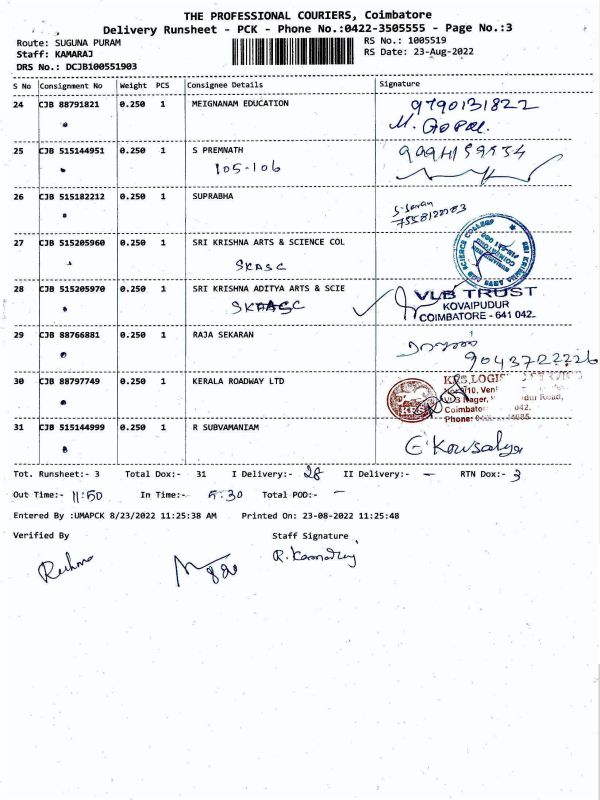 THE PROFESSIONAL COURIERS, Coimbatore
Delivery Runsheet - PCK - Phone No.:0422-3505555 - Page No.:3
Route: SUGUNA PURAM
Staff: KAMARAJ
DRS No.: DCJB100551903
RS No.: 1005519
RS Date: 23-Aug-2022
S No Consignment No Weight PCS Consignee Details Signature
24 CJB 88791821 0.250 1 MEIGNANAM EDUCATION 9790131822
M. Gopal.
25 CJB 515144951 0.250 1 S PREMNATH
105-106
26 CJB 515182212 0.250 1 SUPRABHA
S. Saran
27 CJB 515205960 0.250 1 SRI KRISHNA ARTS & SCIENCE COL
SKASC
28 CJB 515205970 0.250 1 SRI KRISHNA ADITYA ARTS & SCIE
SKAASC
VLB TRUST
KOVAIPUDUR
COIMBATORE - 641 042.
29 CJB 88766881 0.250 1 RAJA SEKARAN
9043722226
30 CJB 88797749 0.250 1 KERALA ROADWAY LTD
KRS
Coimbatore 042.
Phone:
31 CJB 515144999 0.250 1 R SUBVAMANIAM
G. Kowsalya
Tot. Runsheet:- 3 Total Dox:- 31 I Delivery:- 28 II Delivery:- - RTN Dox:- 3
Out Time:- 11:50 In Time:- 5:30 Total POD:- -
Entered By :UMAPCK 8/23/2022 11:25:38 AM Printed On: 23-08-2022 11:25:48
Verified By Staff Signature